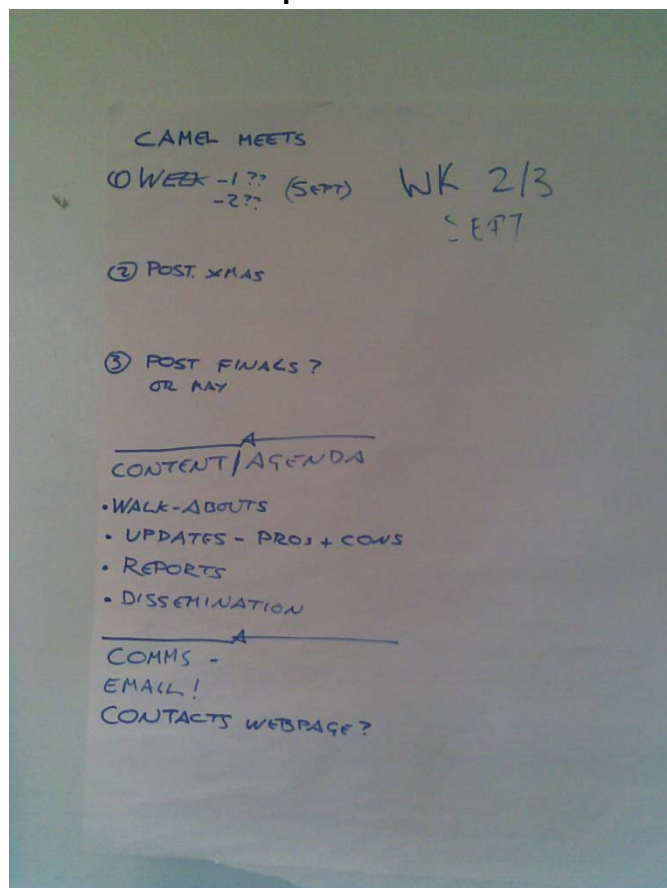 CAMEL MEETS
① WEEK -1 ?? (SEPT) WK 2/3
-2 ?? SEPT
② POST. XMAS
③ POST FINALS?
OR MAY
CONTENT/AGENDA
• WALK-ABOUTS
• UPDATES - PROS + CONS
• REPORTS
• DISSEMINATION
COMMS -
EMAIL!
CONTACTS WEBPAGE?